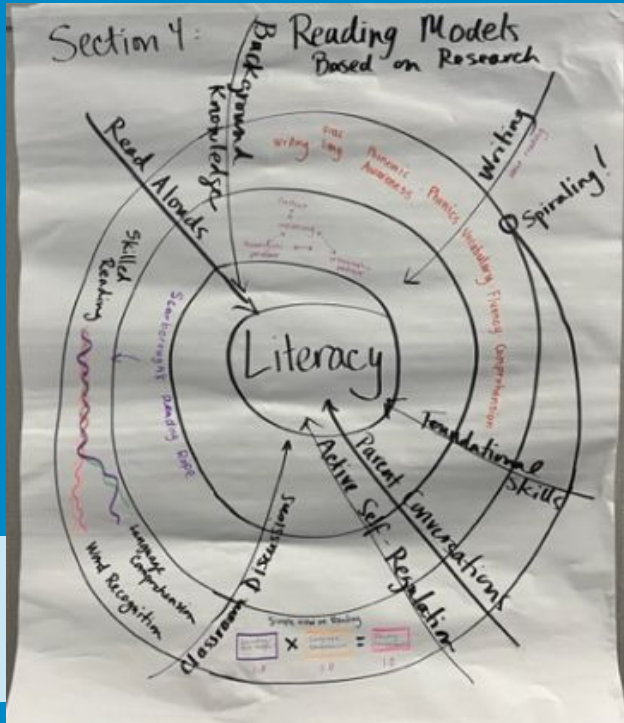 Section 4:
Reading Models
Based on Research
Background
Knowledge
Read Alouds
Writing
Spiraling!
writing
oral
lang
Phonemic
Awareness
Phonics
Vocabulary
Fluency
Comprehension
Skilled
Reading
Scarborough's Reading Rope
Literacy
Foundational
Skills
Parent Conversations
Active Self-Regulation
Classroom Discussions
Language
Comprehension
Word Recognition
Simple view of Reading
x
=
1.0
1.0
1.0